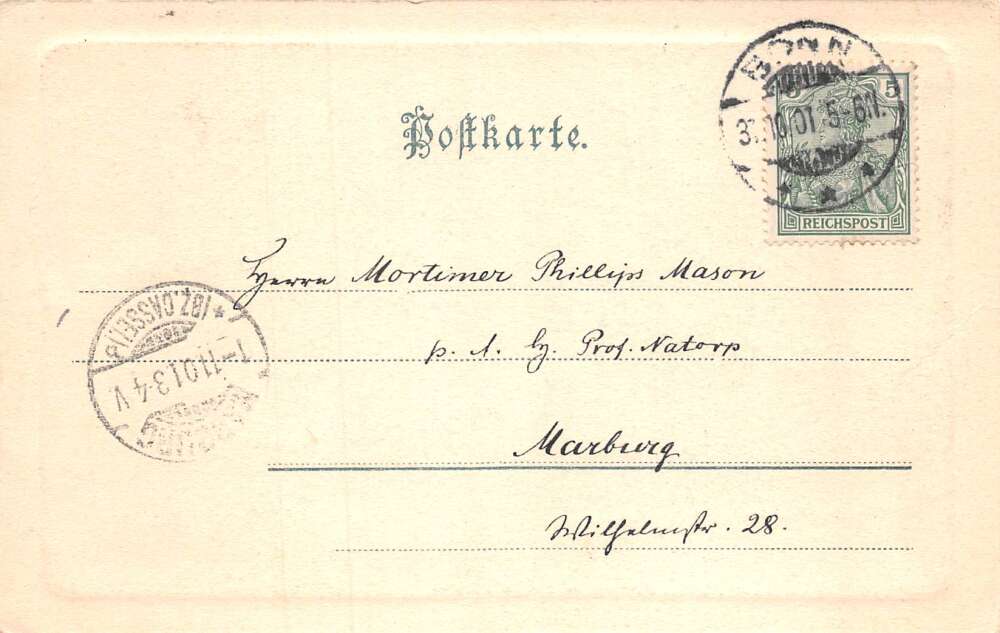 Postkarte.
BONN
31.10.01 5-6N.
5
REICHSPOST
Herrn Mortimer Phillips Mason
p. A. Prof. Natorp
Marburg
Wilhelmstr. 28.
MARBURG
1-11.01.3-4 V
* (BZ. CASSEL) B